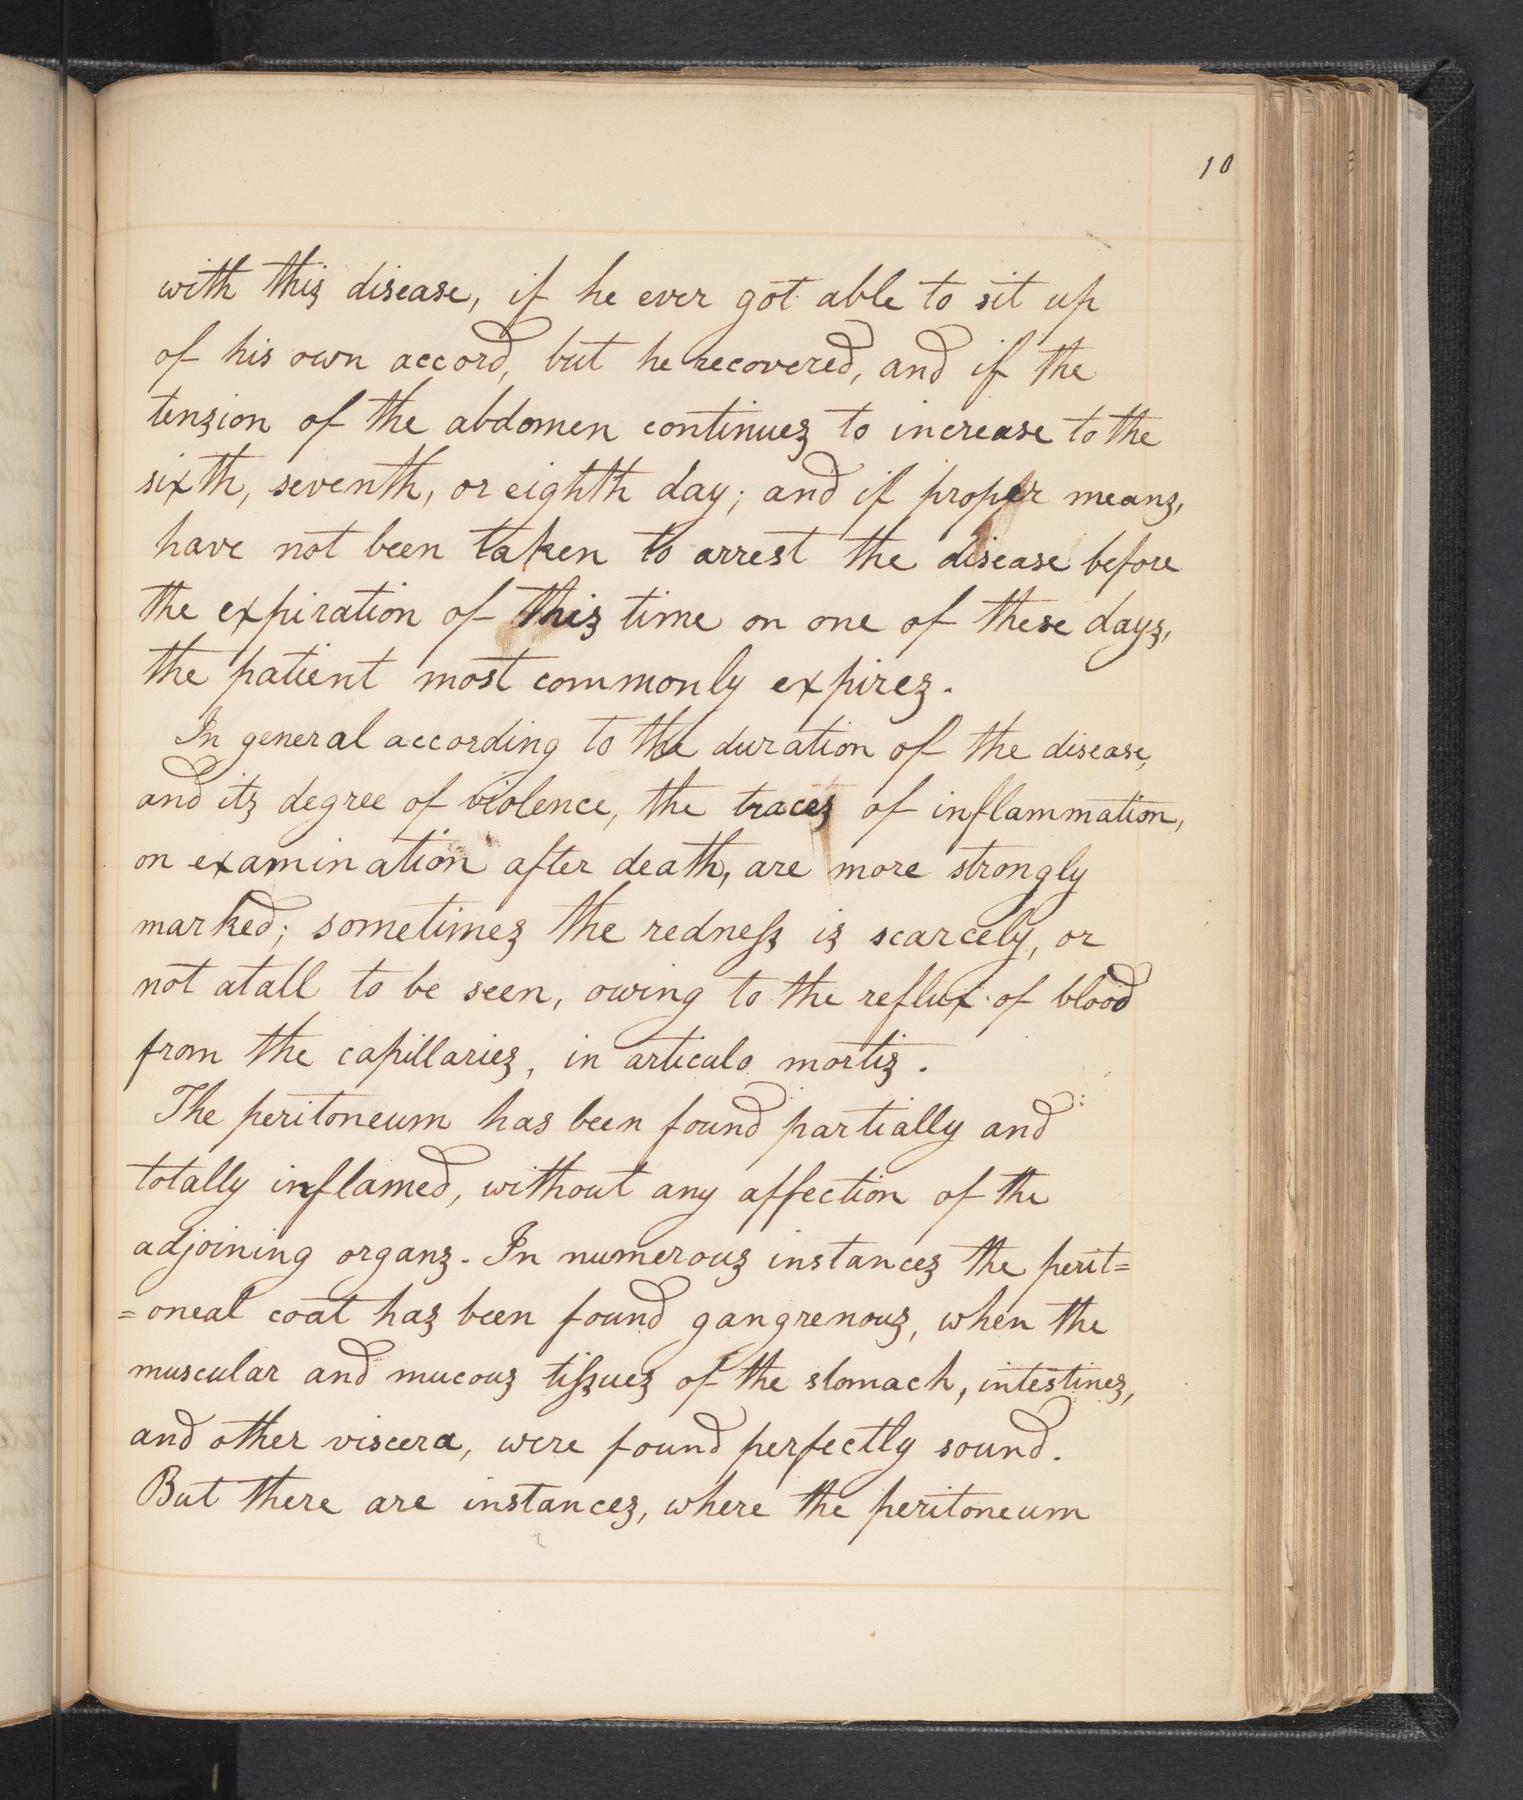 10
with this disease, if he ever got able to sit up
of his own accord, but he recovered, and if the
tension of the abdomen continues to increase to the
sixth, seventh, or eighth day; and if proper means,
have not been taken to arrest the disease before
the expiration of this time on one of these days,
the patient most commonly expires.
In general according to the duration of the disease,
and its degree of violence, the traces of inflammation,
on examination after death, are more strongly
marked; sometimes the redneſs is scarcely, or
not atall to be seen, owing to the reflux of blood
from the capillaries, in articulo mortis.
The peritoneum has been found partially and
totally inflamed, without any affection of the
adjoining organs. In numerous instances the perit=
=oneal coat has been found gangrenous, when the
muscular and mucous tiſsues of the stomach, intestines,
and other viscera, were found perfectly sound.
But there are instances, where the peritoneum